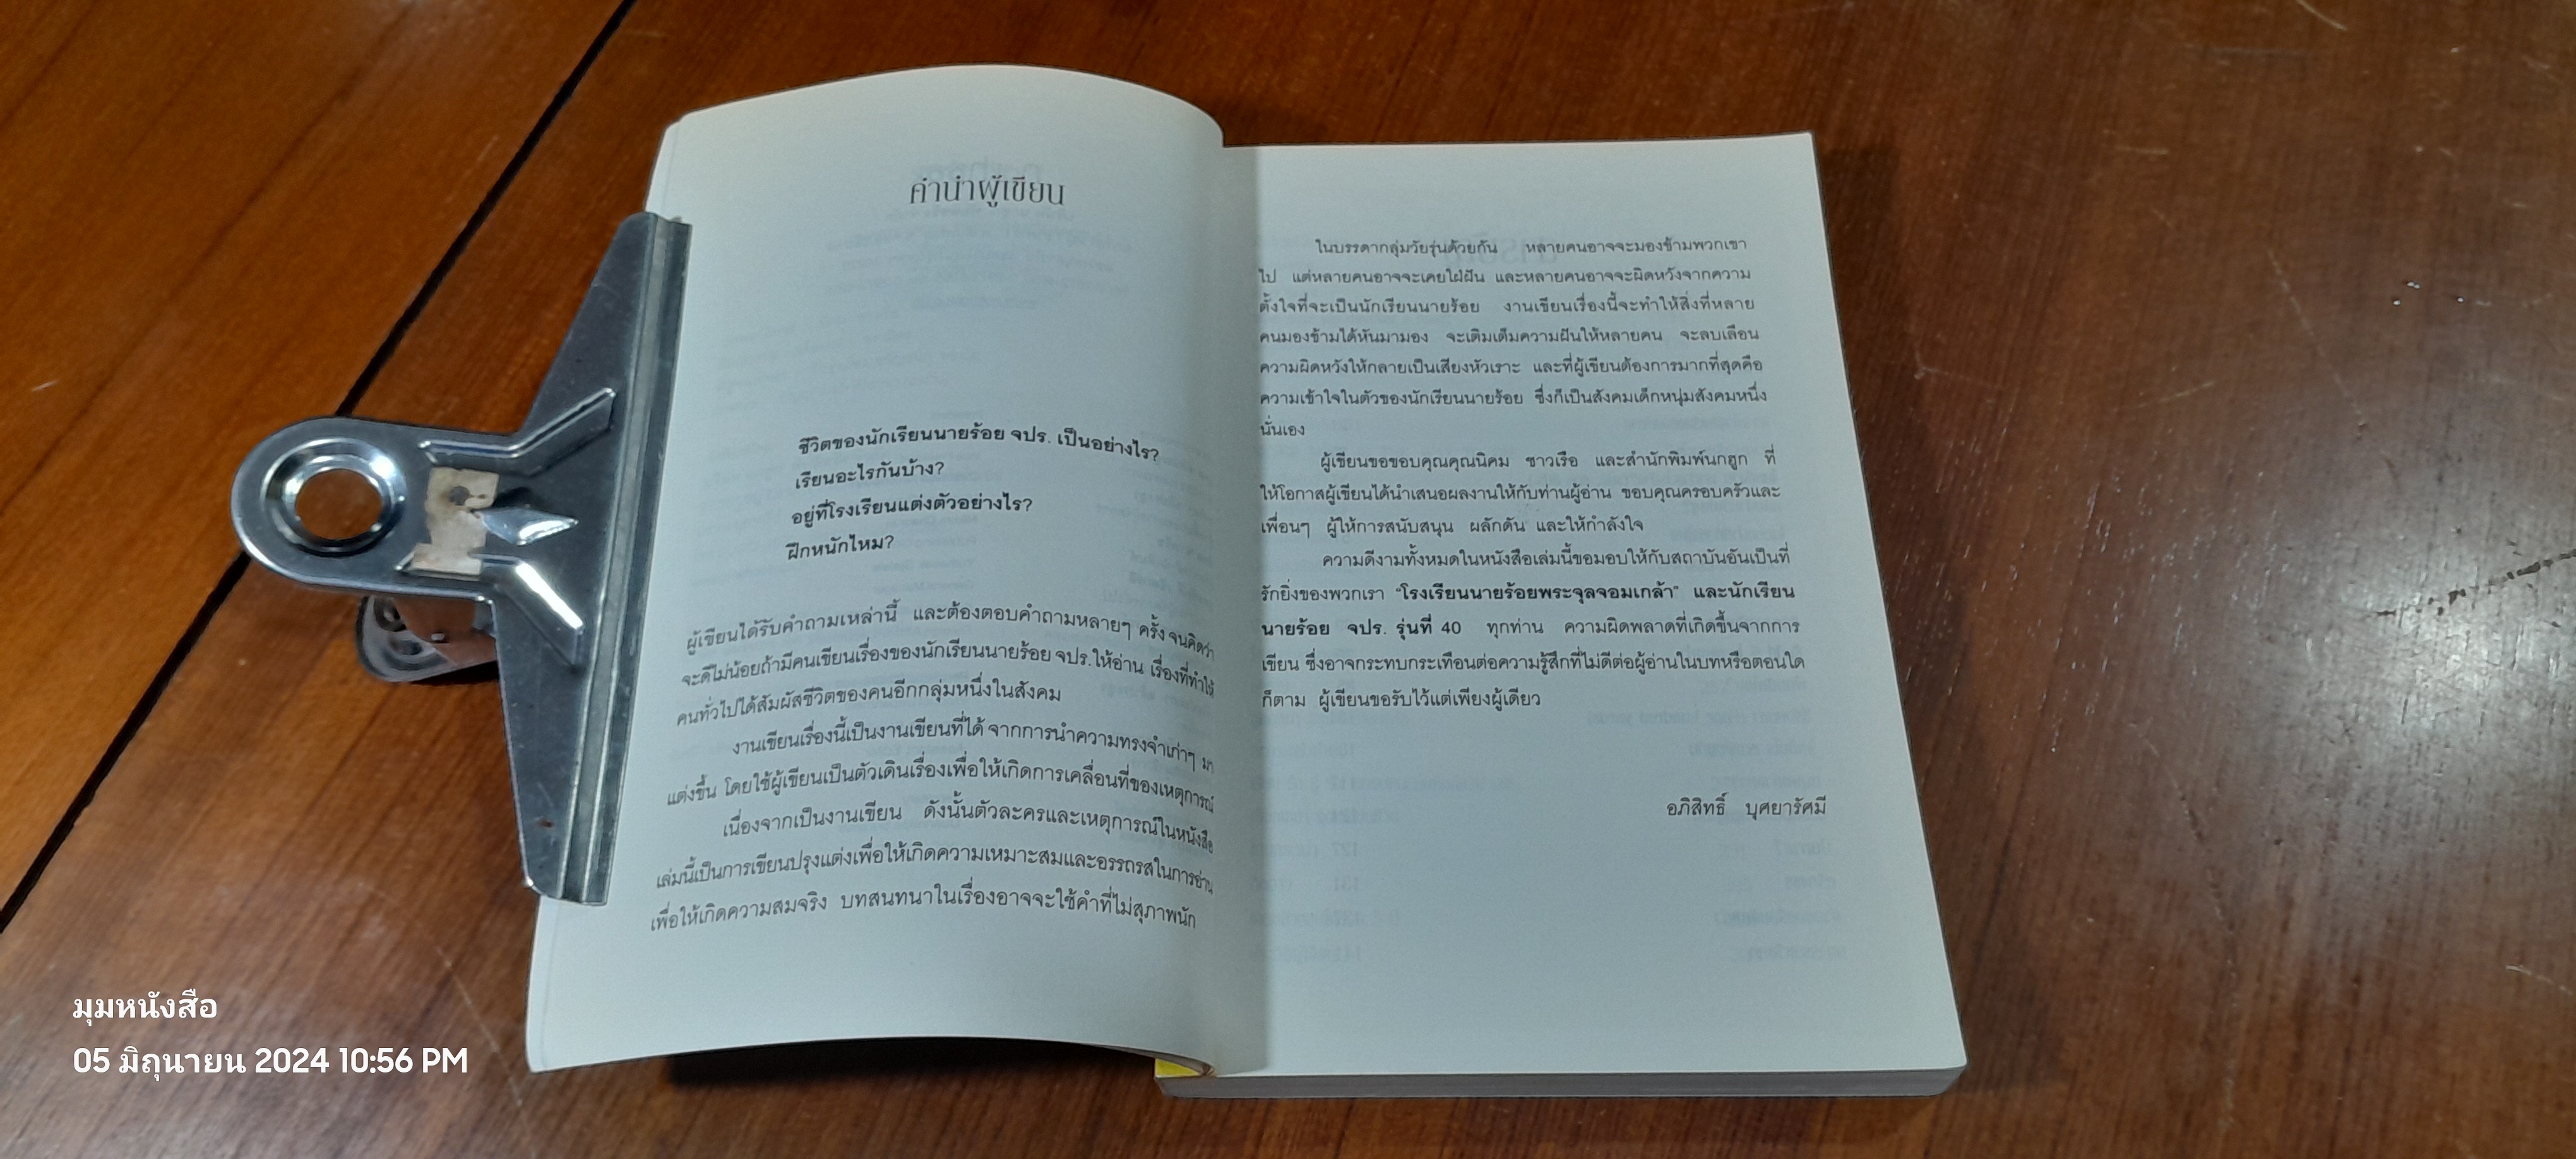 คำนำผู้เขียน
ชีวิตของนักเรียนนายร้อย จปร. เป็นอย่างไร?
เรียนอะไรกันบ้าง?
อยู่ที่โรงเรียนแต่งตัวอย่างไร?
ฝึกหนักไหม?
ผู้เขียนได้รับคำถามเหล่านี้ และต้องตอบคำถามหลายๆ ครั้ง จนคิดว่า
จะดีไม่น้อยถ้ามีคนเขียนเรื่องของนักเรียนนายร้อย จปร.ให้อ่าน เรื่องที่ทำให้
คนทั่วไปได้สัมผัสชีวิตของคนอีกกลุ่มหนึ่งในสังคม
งานเขียนเรื่องนี้เป็นงานเขียนที่ได้ จากการนำความทรงจำเก่าๆ มา
แต่งขึ้น โดยใช้ผู้เขียนเป็นตัวเดินเรื่องเพื่อให้เกิดการเคลื่อนที่ของเหตุการณ์
เนื่องจากเป็นงานเขียน ดังนั้นตัวละครและเหตุการณ์ในหนังสือ
เล่มนี้เป็นการเขียนปรุงแต่งเพื่อให้เกิดความเหมาะสมและอรรถรสในการอ่าน
เพื่อให้เกิดความสมจริง บทสนทนาในเรื่องอาจจะใช้คำที่ไม่สุภาพนัก
ในบรรดากลุ่มวัยรุ่นด้วยกัน หลายคนอาจจะมองข้ามพวกเขา
ไป แต่หลายคนอาจจะเคยใฝ่ฝัน และหลายคนอาจจะผิดหวังจากความ
ตั้งใจที่จะเป็นนักเรียนนายร้อย งานเขียนเรื่องนี้จะทำให้สิ่งที่หลาย
คนมองข้ามได้หันมามอง จะเติมเต็มความฝันให้หลายคน จะลบเลือน
ความผิดหวังให้กลายเป็นเสียงหัวเราะ และที่ผู้เขียนต้องการมากที่สุดคือ
ความเข้าใจในตัวของนักเรียนนายร้อย ซึ่งก็เป็นสังคมเด็กหนุ่มสังคมหนึ่ง
นั่นเอง
ผู้เขียนขอขอบคุณคุณนิคม ชาวเรือ และสำนักพิมพ์นกฮูก ที่
ให้โอกาสผู้เขียนได้นำเสนอผลงานให้กับท่านผู้อ่าน ขอบคุณครอบครัวและ
เพื่อนๆ ผู้ให้การสนับสนุน ผลักดัน และให้กำลังใจ
ความดีงามทั้งหมดในหนังสือเล่มนี้ขอมอบให้กับสถาบันอันเป็นที่
รักยิ่งของพวกเรา "โรงเรียนนายร้อยพระจุลจอมเกล้า" และนักเรียน
นายร้อย จปร. รุ่นที่ 40 ทุกท่าน ความผิดพลาดที่เกิดขึ้นจากการ
เขียน ซึ่งอาจกระทบกระเทือนต่อความรู้สึกที่ไม่ดีต่อผู้อ่านในบทหรือตอนใด
ก็ตาม ผู้เขียนขอรับไว้แต่เพียงผู้เดียว
อภิสิทธิ์ บุศยารัศมี
มุมหนังสือ
05 มิถุนายน 2024 10:56 PM